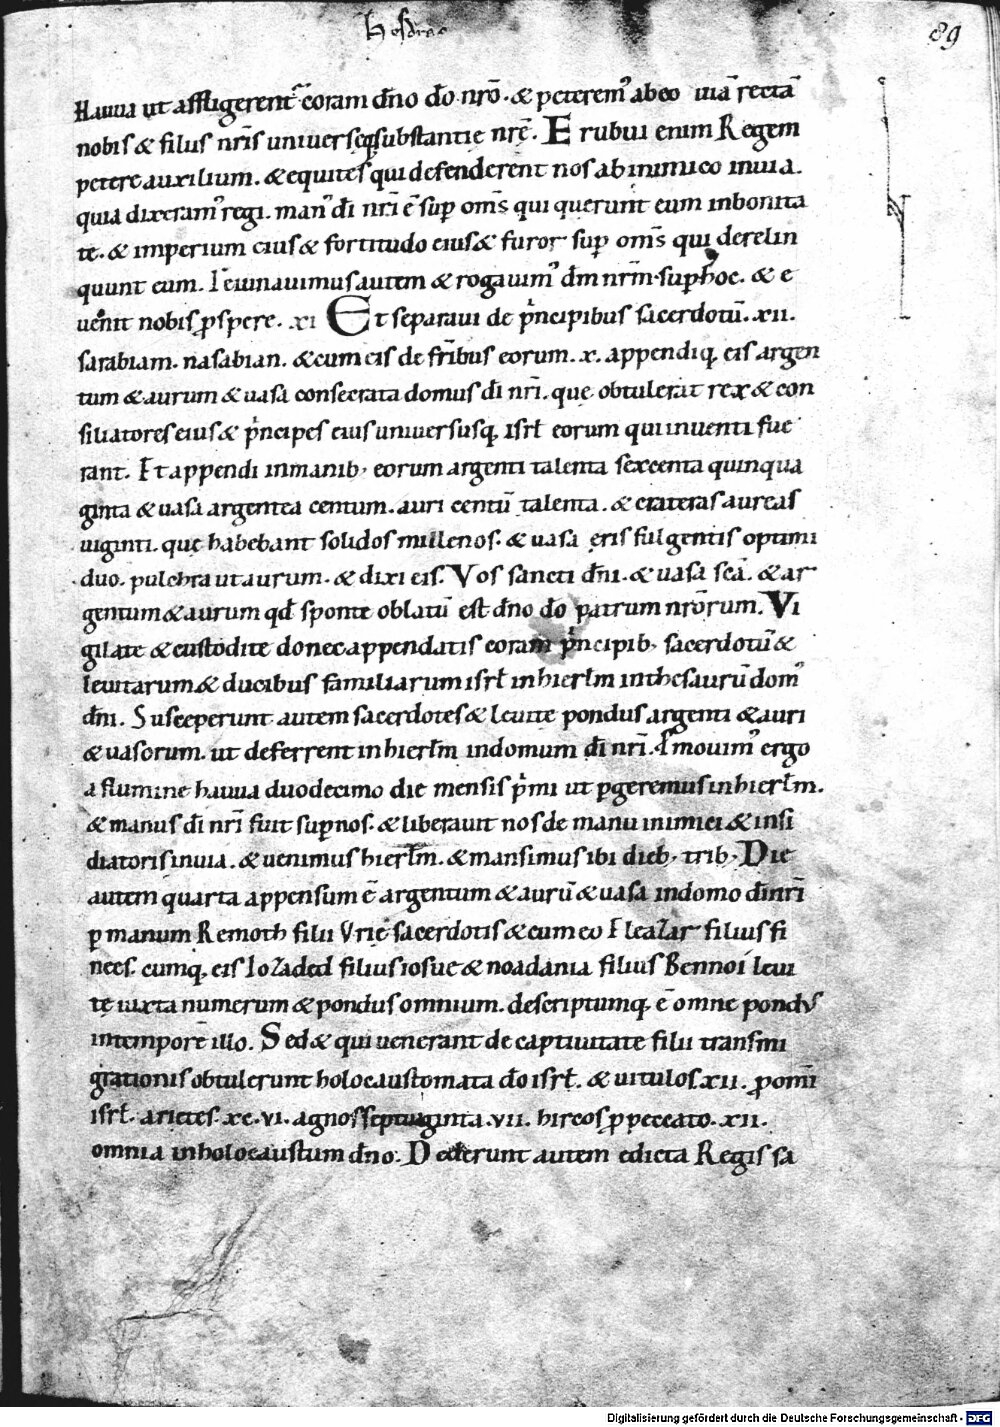 hesdrae
89
Hauua ut affligerent᷑ coram dn̄o do̅ nr̄o · & peterem᷒ ab eo uiā rectā
nobis & filiis nr̄is uniuerseq; substantie nr̄e · Erubui enim Regem
petere auxilium · & equites qui defenderent nos ab inimico in uia ·
quia dixeram᷒ regi · man᷒ dī nr̄i ē sup̄ om̄s qui querunt eum in bonita
te · & imperium eius & fortitudo eius & furor sup̄ om̄s qui derelin
quunt eum · Ieiunauimus autem & rogauim᷒ dm̄ nr̄m · sup̄ hoc · & e
uenit nobis ꝓspere · xi Et separaui de p̍ncipibus sacerdotū · xii ·
sarabiam · nasabian · & cum eis de fr̄ibus eorum · x · appendiq; eis argen
tum & aurum & uasa consecrata domus dī nr̄i · que obtulerat rex & con
siliatores eius & p̍ncipes eius uniuersusq; isrł eorum qui inuenti fue
rant · Et appendi in manib; eorum argenti talenta sexcenta quinqua
ginta & uasa argentea centum · auri centū talenta · & crateras aureas
uiginti · que habebant solidos millenos · & uasa eris fulgentis optimi
duo · pulchra ut aurum · & dixi eis · Vos sancti dn̄i · & uasa sc̄a · & ar
gentum & aurum qđ sponte oblatū est dn̄o do̅ patrum nr̄orum · Vi
gilate & custodite donec appendatis coram p̍ncipib; sacerdotū &
leuitarum & ducibus familiarum isrł in hierłm in thesaurū dom᷒
dn̄i · Susceperunt autem sacerdotes & leuite pondus argenti & auri
& uasorum · ut deferrent in hierłm in domum dī nr̄i · Amouim᷒ ergo
a flumine hauua duodecimo die mensis p̍mi ut ꝑgeremus in hierłm ·
& manus dī nr̄i fuit sup̄ nos · & liberauit nos de manu inimici & insi
diatoris in uia · & uenimus hierłm · & mansimus ibi dieb; trib; Die
autem quarta appensum ē argentum & aurū & uasa in domo dī nr̄i
ꝑ manum Remoth filii Vrie sacerdotis & cum eo Eleazar filius fi
nees · cumq; eis Iozaded filius iosue & noadania filius Bennoi leui
te iuxta numerum & pondus omnium · descriptumq; ē omne pondus
in tempore illo · Sed & qui uenerant de captiuitate filii transmi
grationis obtulerunt holocaustomata do̅ isrł · & uitulos xii · ꝓ om̄i
isrł · arietes · xc · vi · agnos septuaginta · vii · hircos ꝓ peccato · xii ·
omnia in holocaustum dn̄o · Dederunt autem edicta Regis sa
Digitalisierung gefördert durch die Deutsche Forschungsgemeinschaft - DFG